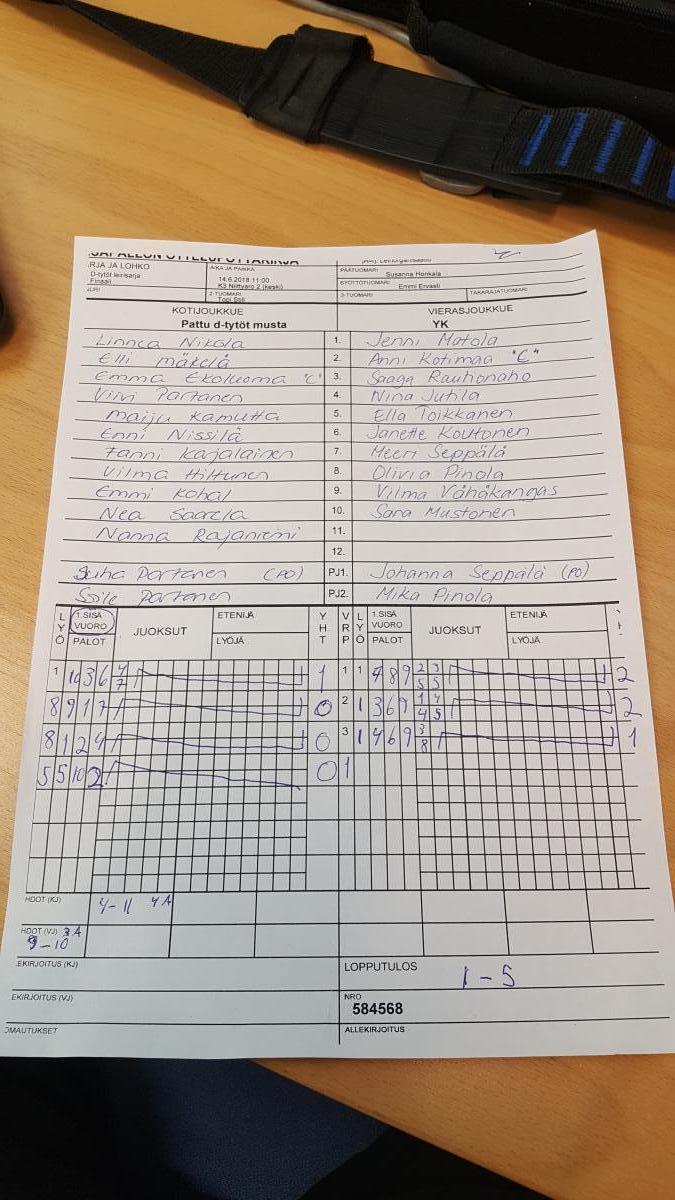 RJA JA LOHKO AIKA JA PAIKKA PÄÄTUOMARI Susanna Honkala
D-tytöt leirisarja 14.6.2018 11:00 SYÖTTÖTUOMARI Emmi Ervasti
Finaali K3 Niittyaro 2 (keski)
2-TUOMARI 3-TUOMARI TAKARAJATUOMARI
KOTIJOUKKUE VIERASJOUKKUE
Pattu d-tytöt musta YK
Linnea Nikola 1. Jenni Matola
Elli mäkelä 2. Anni Kotimaa "C"
Emma Ekoluoma "C" 3. Saaga Rauhonaho
Viivi Partanen 4. Nina Juhla
Maiju Kamutta 5. Ella Toikkanen
Enni Nissilä 6. Janette Koutonen
Fanni Karjalainen 7. Meeri Seppälä
Vilma Hiltunen 8. Olivia Pinola
Emmi Kohal 9. Vilma Vähäkangas
Nea Saarela 10. Sara Mustonen
Nanna Rajaniemi 11.
12.
Juha Partanen (PO) PJ1. Johanna Seppälä (PO)
Partanen PJ2. Mika Pinola
LYÖ 1.SISÄ VUORO PALOT JUOKSUT ETENIJÄ LYÖJÄ YHT VRP LYÖ 1.SISÄ VUORO PALOT JUOKSUT ETENIJÄ LYÖJÄ
1 10 3 6 4 7 1 1 1 4 8 9 2 3 5 5 2
8 9 1 7 0 2 1 3 6 9 1 4 4 5 2
8 1 2 4 0 3 1 4 6 9 3 8 1
5 5 10 2 0 1
HDOT (KJ) 4-11 4A
HDOT (VJ) 3A
9-10
EKIRJOITUS (KJ) LOPPUTULOS 1-5
EKIRJOITUS (VJ) NRO
584568
OMAUTUKSET ALLEKIRJOITUS